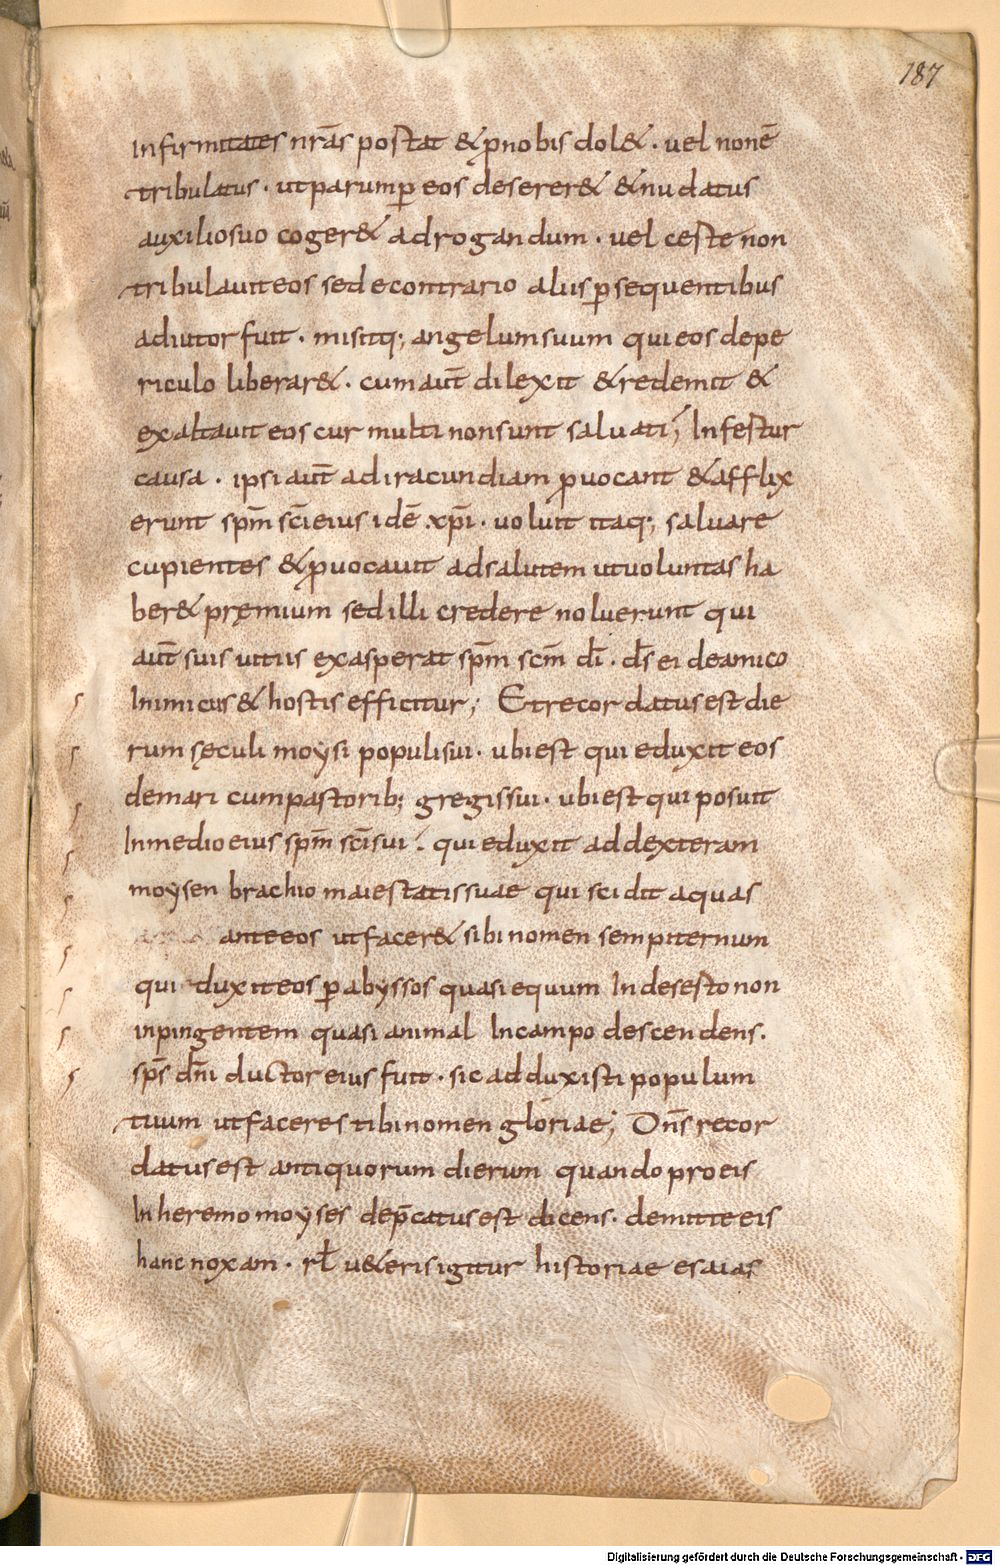 187
infirmitates nr̄as postat & ꝓnobis dol& · uel nonē
tribulatus · utparump̲ eos deserer& & nudatus
auxiliosuo coger& adrogandum · uel ceste non
tribulauiteos sed econtrario aliis p̲sequentibus
adiutor fuit · misitq; angelumsuum quieos depe
riculo liberar& · cum aut̄ dilexit & redemit &
exaltauit eos cur multi nonsunt saluati; Infestur
causa · ipsi aut̄ adiracundiam ꝓuocant & afflix
erunt sp̄m sc̄i eius idē xp̄i · uoluit itaq; saluare
cupientes & ꝓuocauit adsalutem utuoluntas ha
ber& pręmium sed illi credere noluerunt qui
aut̄ suis uitiis exasperat sp̄m sc̄m dī · ds̄ ei deamico
Inimicus & hostis efficitur; Etrecordatusest die
rum sęculi moẏsi populisui · ubiest qui eduxit eos
demari cumpastorib; gregissui · ubiest qui posuit
Inmedio eius sp̄m sc̄isui · qui eduxit addexteram
moẏsen brachio maiestatissuae qui scidit aquas
anteeos utfacer& sibi nomen sempiternum
qui duxiteos p̲abẏssos quasi equum Indesesto non
inpingentem quasi animal Incampo descendens ·
sp̄s dn̄i ductor eius fuit · sic adduxisti populum
tuum utfaceres tibinomen gloriae; Dn̄s recor
datusest antiquorum dierum quando pro eis
Inheremo moẏses dep̄catusest dicens · demitte eis
hanc noxam · rł u&erisigitur historiae esaias
Digitalisierung gefördert durch die Deutsche Forschungsgemeinschaft - DFG